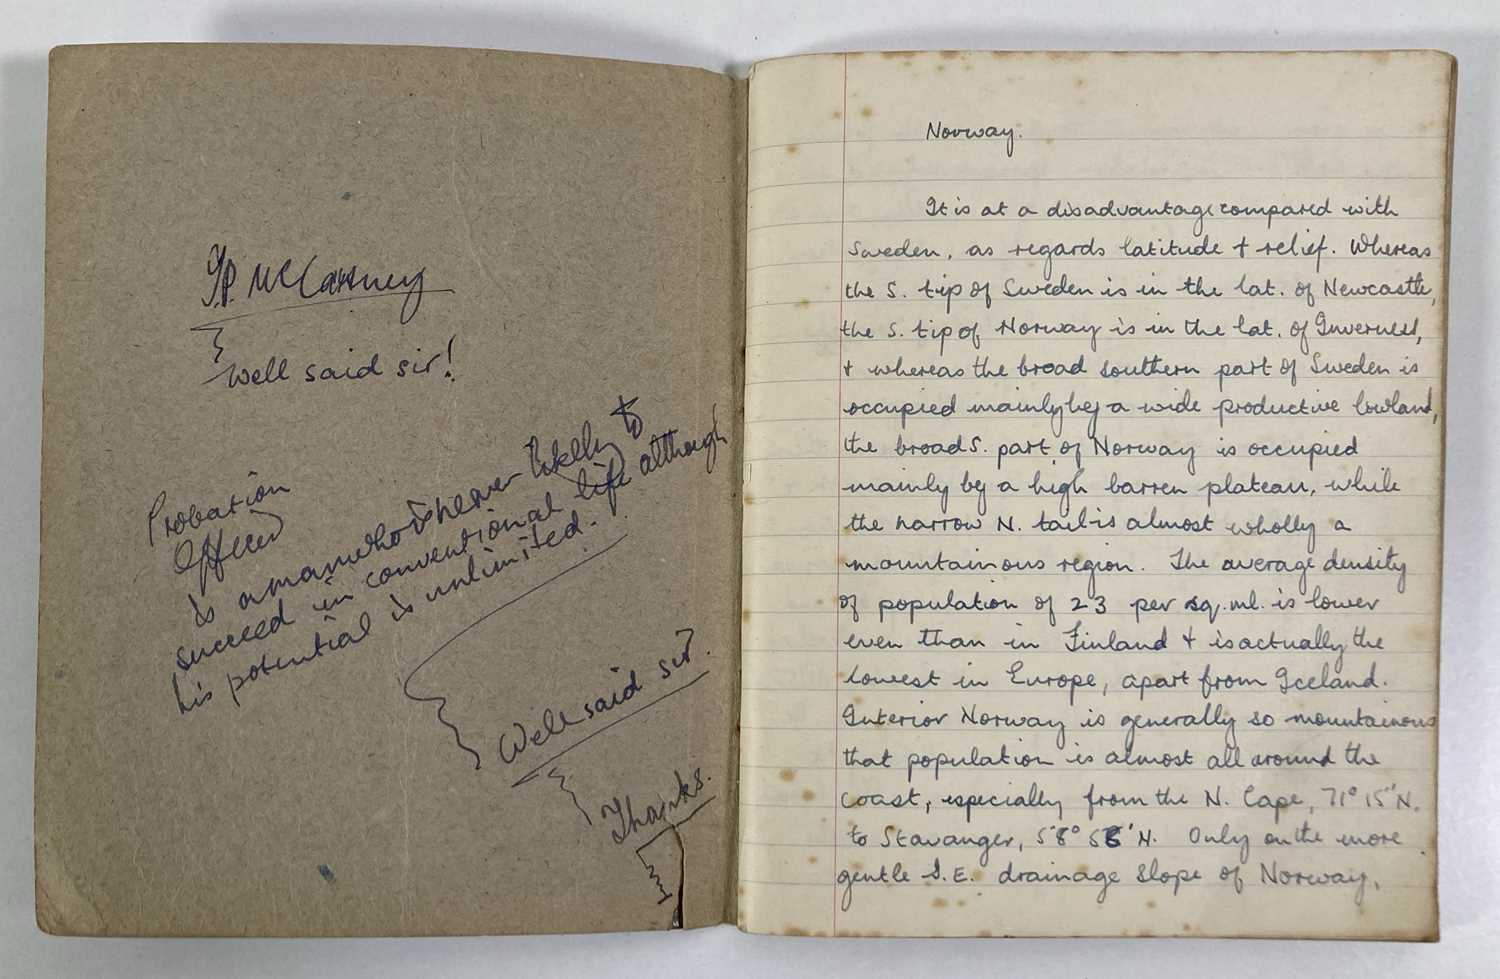 J.P. McCartney
Well said sir!
Probation
Officer
is a man who is never likely to
succeed in conventional life although
his potential is unlimited.
Well said sir.
Thanks.
Norway.
It is at a disadvantage compared with
Sweden, as regards latitude + relief. Whereas
the S. tip of Sweden is in the lat. of Newcastle,
the S. tip of Norway is in the lat. of Inverness,
+ whereas the broad southern part of Sweden is
occupied mainly by a wide productive lowland,
the broad S. part of Norway is occupied
mainly by a high barren plateau, while
the narrow N. tail is almost wholly a
mountainous region. The average density
of population of 23 per sq. ml. is lower
even than in Finland + is actually the
lowest in Europe, apart from Iceland.
Interior Norway is generally so mountainous
that population is almost all around the
coast, especially from the N. Cape, 71° 15"N.
to Stavanger, 58° 56'N. Only on the more
gentle S.E. drainage slope of Norway,